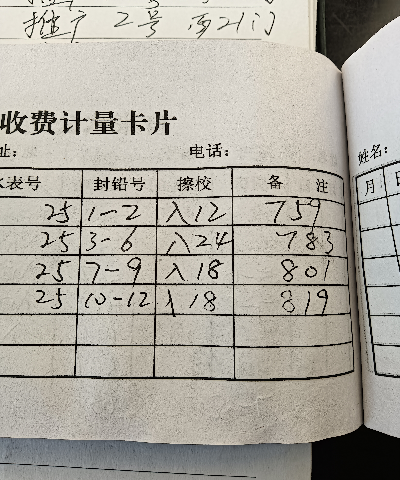 推广 2号 西21门
收费计量卡片
址： 电话：
水表号 封铅号 擦校 备 注
25 1-2 入12 759
25 3-6 入24 783
25 7-9 入18 801
25 10-12 入18 819
姓名：
月 日